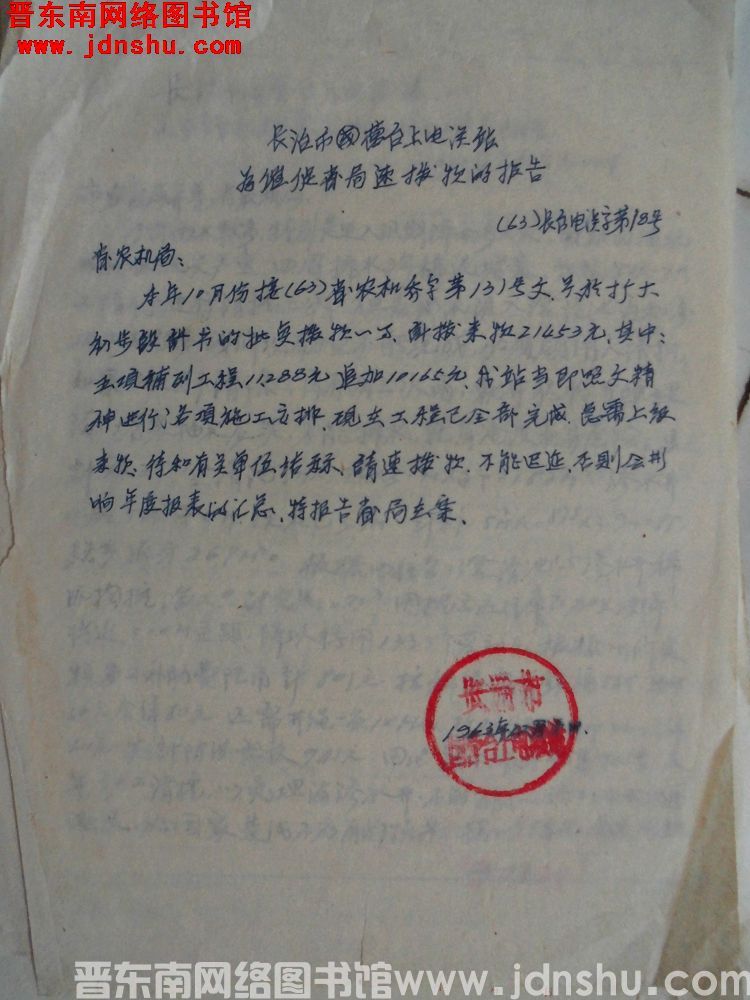 晋东南网络图书馆
www.jdnshu.com
长治市国营台上电灌站
为催促省局速拨款的报告
(63)长台电灌字第18号
省农机局：
本年10月份接(63)省农机字第131号文，关於扩大
初步设计书的批复拨款一文，计拨来款21453元，其中：
主项辅到工程11288元追加10165元，我站当即照文精
神进行各项施工安排，现在工程已全部完成，急需上级
来款，待和有关单位结标，请速拨款，不能迟延，否则会影
响年度报表的汇总，特报告省局立案。
长治市
1963年
晋东南网络图书馆www.jdnshu.com